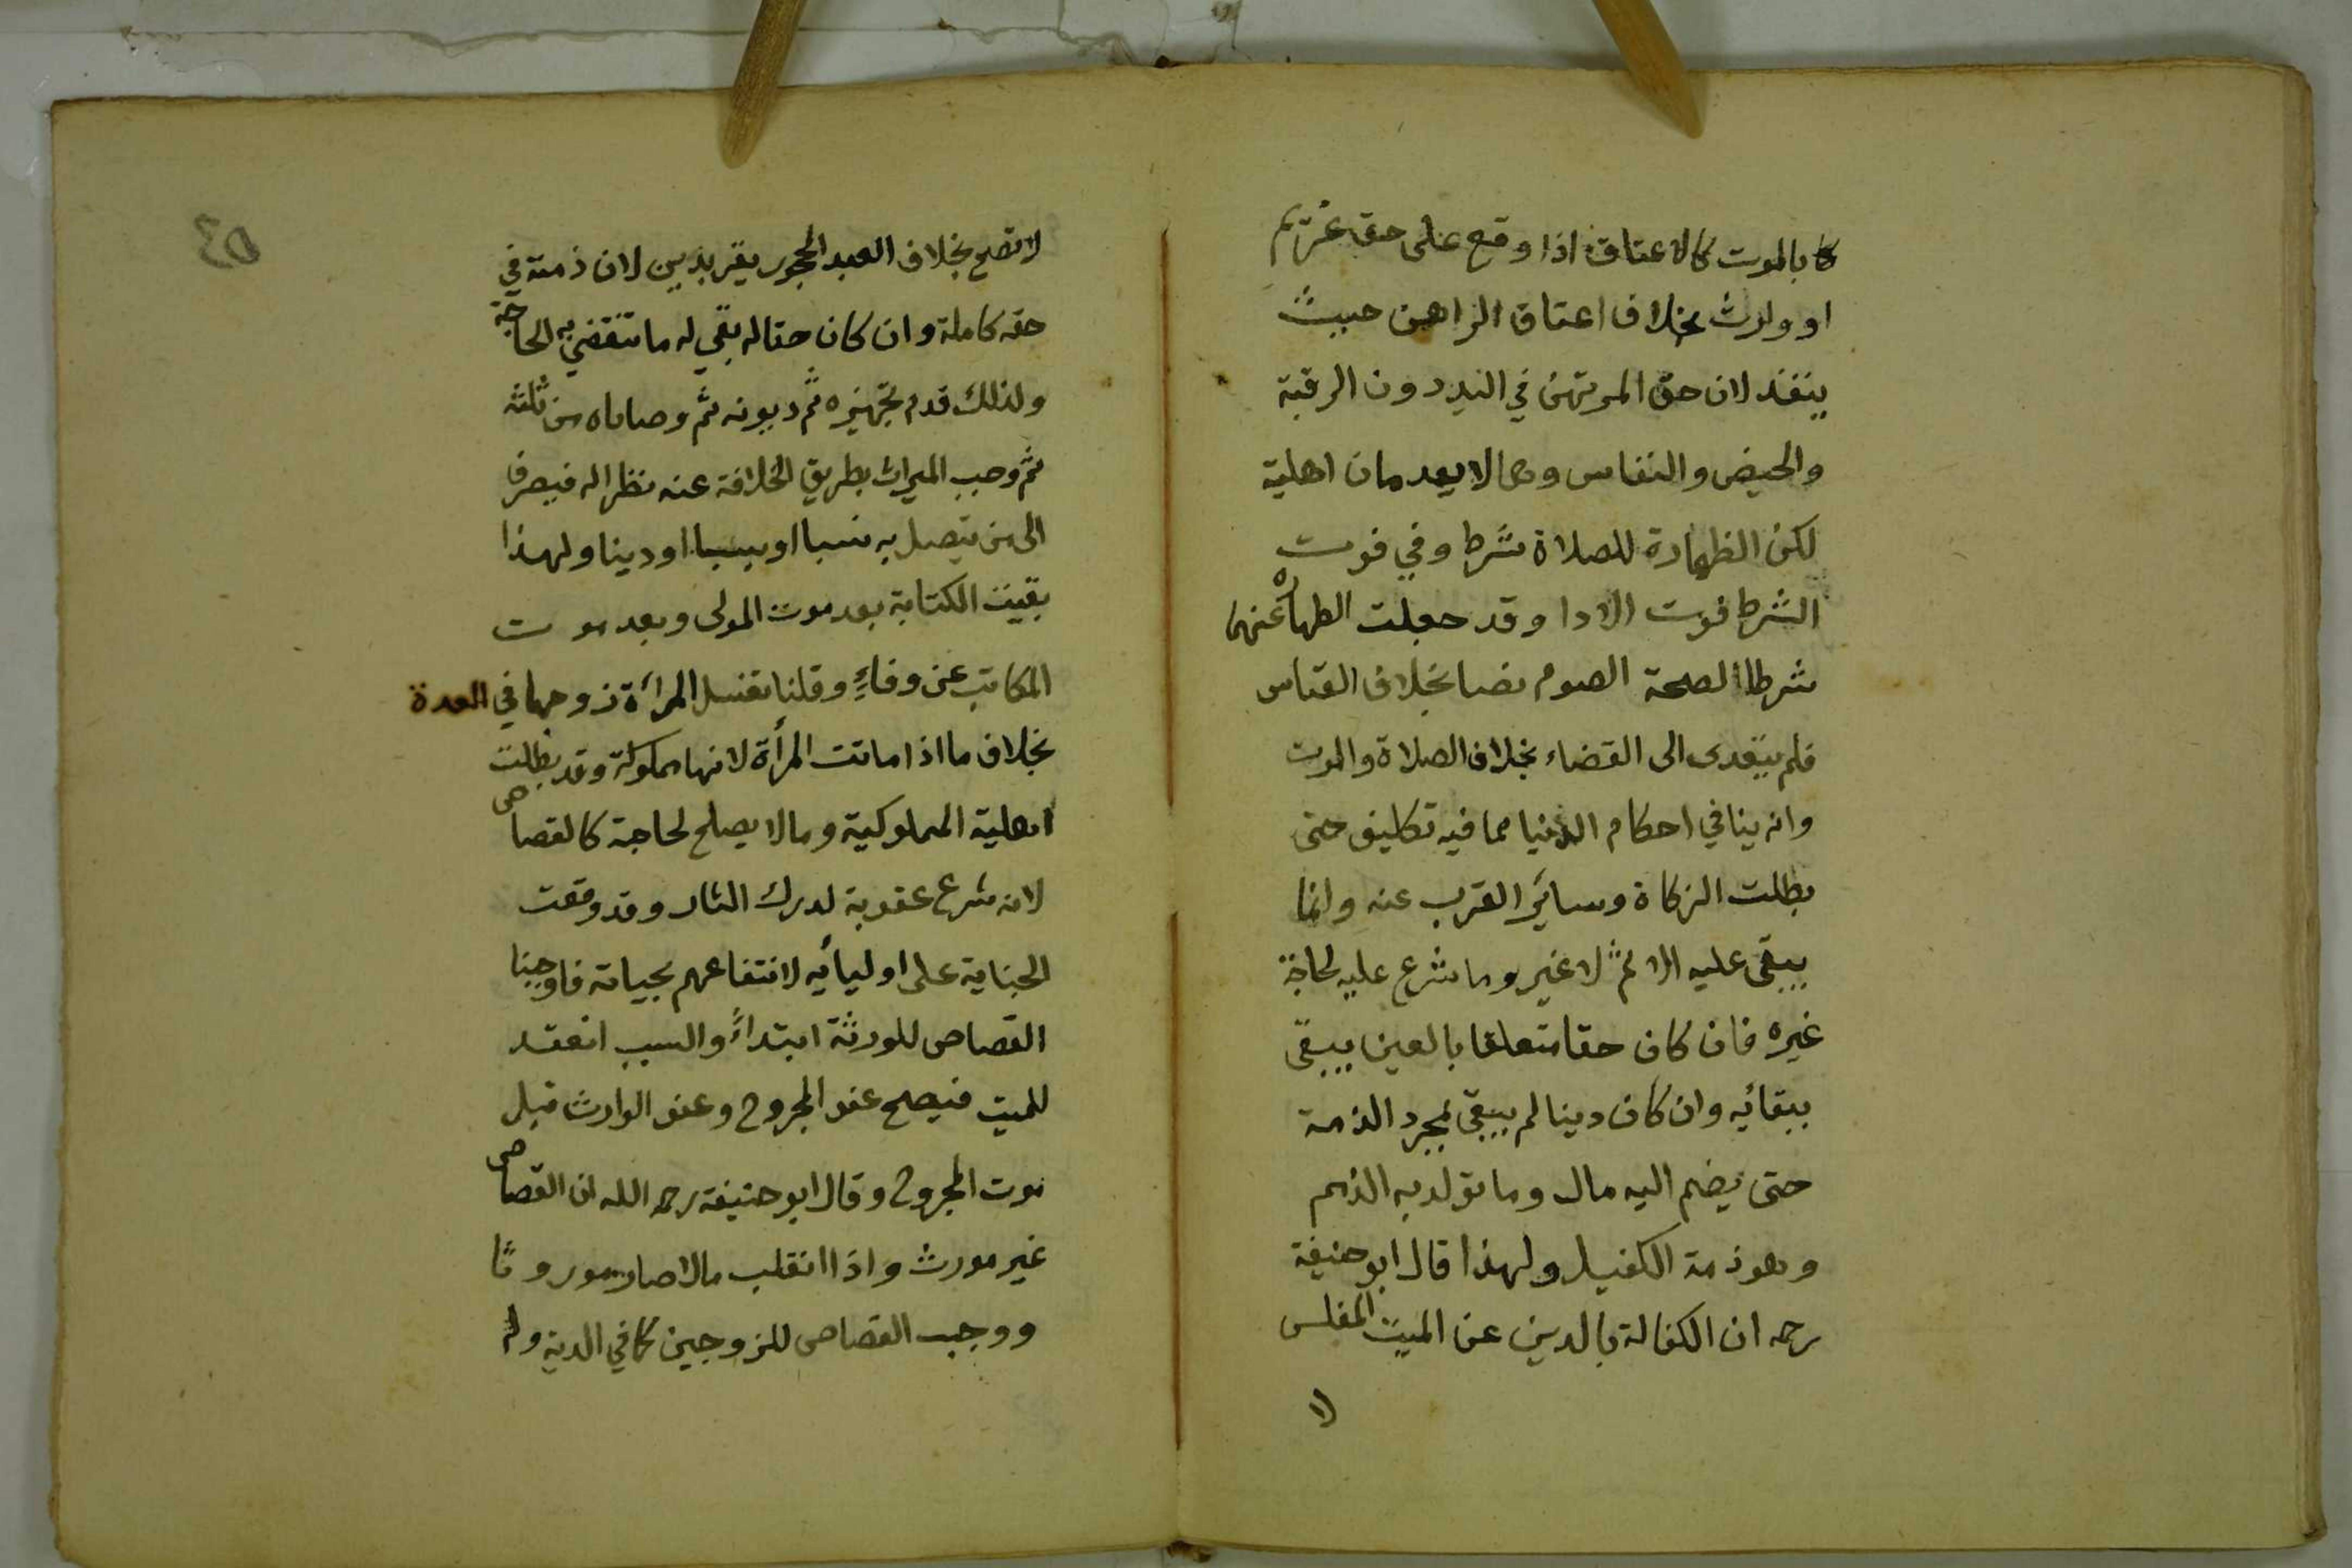 بالموت كالاعتاق اذا وقع على حق غريم
او وارث بخلاف اعتاق الراهن حيث
ينفذ لان حق المرتهن في اليد دون الرقبة
والحيض والنفاس وهما لا يعدمان اهلية
لكن الطهارة للصلاة شرط وفي فوت
الشرط فوت الادا وقد جعلت الطهارة عنهما
شرطا لصحة الصوم نصا بخلاف القياس
فلم يتعدى الى القضاء بخلاف الصلاة والموت
وانه ينافي احكام الدنيا مما فيه تكليف حتى
بطلت الزكاة وسائر القرب عنه وانما
يبقى عليه الاثم لا غير وما شرع عليه لحاجة
غيره فان كان حقا متعلقا بالعين يبقى
ببقائه وان كان دينا لم يبقى بمجرد الذمة
حتى يضم اليه مال وما تولد به الذمم
وهو ذمة الكفيل ولهذا قال ابو حنيفة
رحمه ان الكفالة بالدين عن الميت المفلس
لا
٤٥
لا تصح بخلاف العبد المحجور يقر بدين لان ذمته في
حقه كاملة وان كان حقا له بقي له ما تنقضي به الحاجة
ولذلك قدم تجهيزه ثم ديونه ثم وصاياه من ثلثه
ثم وجب الميراث بطريق الخلافة عنه نظرا له فيصرف
الى من يتصل به نسبا او سببا او دينا ولهذا
بقيت الكتابة بعد موت المولى وبعد موت
المكاتب عن وفاءٍ وقلنا تغسل المرأة زوجها في العدة
بخلاف ما اذا ماتت المرأة لانها مملوكة وقد بطلت
اهلية المملوكية وما لا يصلح لحاجة كالقصاص
لانه شرع عقوبة لدرك الثار وقد وقعت
الجناية على اوليائه لانتفاعهم بحياته فاوجبنا
القصاص للورثة ابتداءً والسبب انعقد
للميت فيصح عفو المجروح وعفو الوارث قبل
موت المجروح وقال ابو حنيفة رحمه الله ان القصاص
غير مورث واذا انقلب مالا صار موروثا
ووجب القصاص للزوجين كما في الدية وله